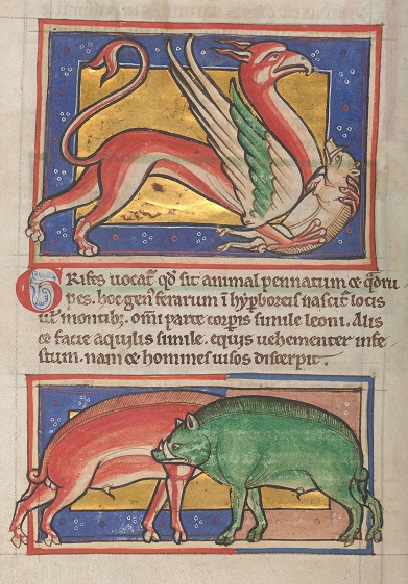 GRifes uocat᷑ qđ sit animal pennatum ⁊ q̈dru
pes. hoc gen᷒ ferarum ī hyꝑboreis nascit᷑ locis
uł montibȝ. om̄i parte corꝑis simile leoni. Alis
⁊ facie aquilis simile. equis uehementer infe
stum. nam ⁊ homines uisos discerpit.